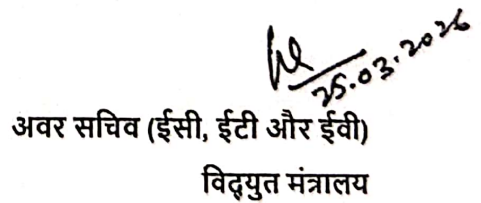 25.03.2026
अवर सचिव (ईसी, ईटी और ईवी)
विद्युत मंत्रालय